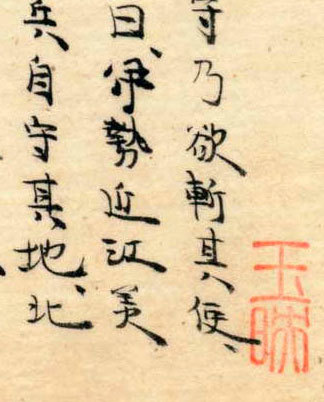 守乃欲斬其使、
曰、伊勢近江美
兵、自守其地、北